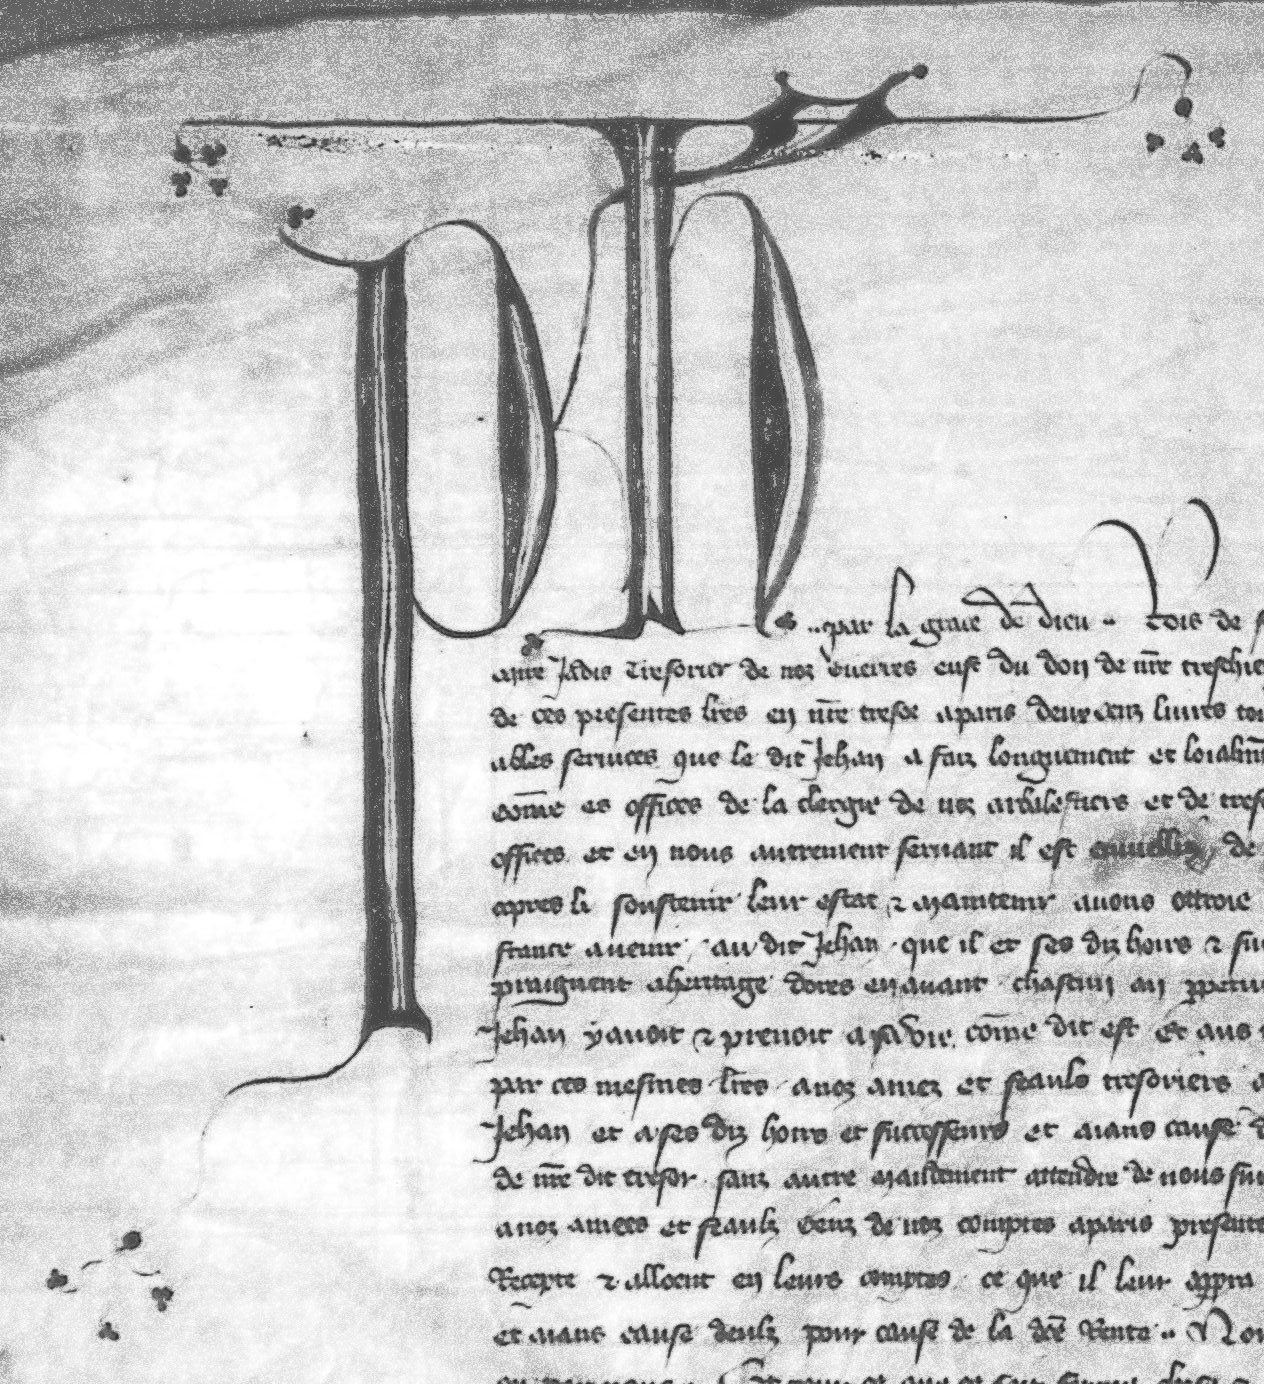 Ph
par la grace de dieu Rois de
Jadis Tresorier de noz Guerres eust du don de nre treschie
de ces presentes lres en nre tresor aparis deux cenz liures to
ables seruices que le dit Jehan a faiz longuement et loialmt
come es offices de la clergie de noz arbalestiers et de
offices et en nous autrement seruant il est enuielliz de
apres li soustenir leur estat ⁊ maintenir auons ottroie
auenir au dit Jehan que il et ses diz hoirs ⁊ su
praignent aheritage dores en auant chascun an ppetu
Jehan y auoit ⁊ prenoit a sa vie come dit est Et auns
par ces mesmes lres anoz amez et feauls tresoriers
Jehan et a ses diz hoirs et successeurs et aians cause d
de nre dit tresor sanz autre mandement attendre de nous sur
anoz amees et feaulz Genz de noz comptes aparis presente
Recepte ⁊ alloent en leurs comptes ce que il leur appra
et aians cause deulz pour cause de la dce Rente Non